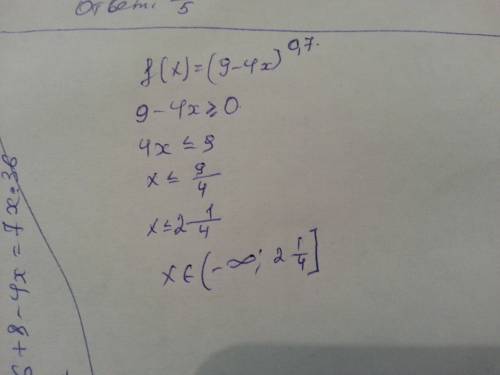 Ответ: /5
f(x)=(9-4x)^0,7.
9-4x≥0
4x≤9
x≤9/4
x≤2 1/4
x∈(-∞; 2 1/4]
+8-4x=7x-36